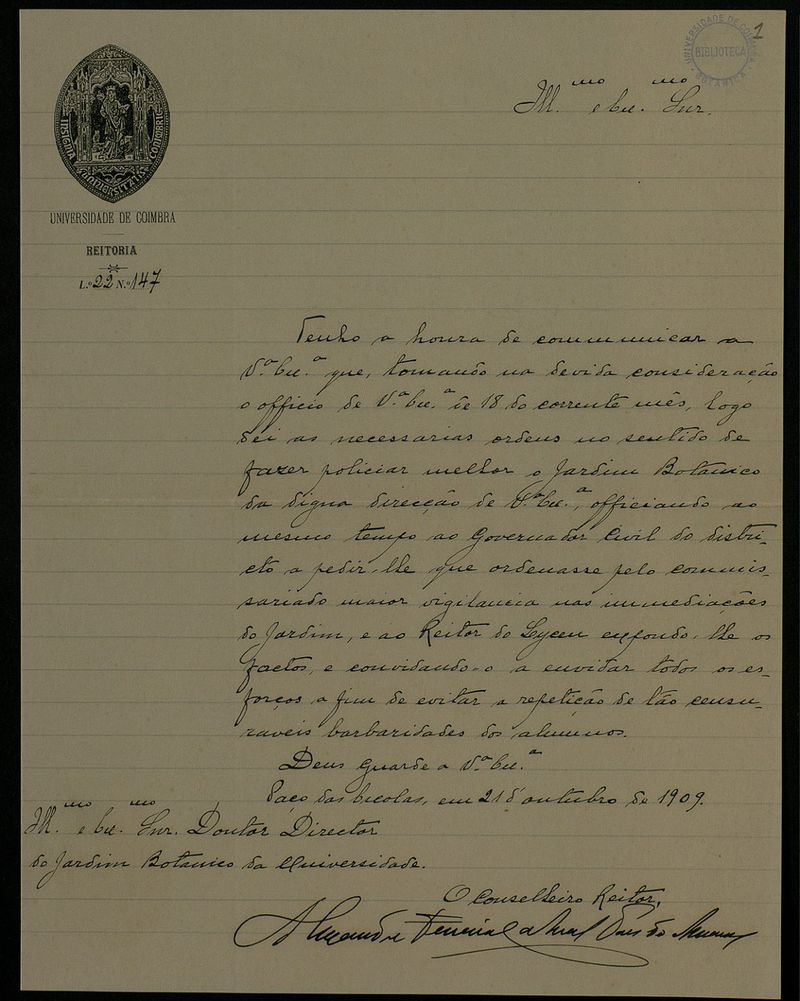 1
UNIVERSIDADE DE COIMBRA
BIBLIOTECA
BOTANICA
Ill.mo e Ex.mo Snr.
INSIGNIA UNIVERSITATIS CONIMBRIGENSIS
UNIVERSIDADE DE COIMBRA
REITORIA
L.º 22 N.º 147
Tenho a honra de communicar a
V.ª Ex.ª que, tomando na devida consideração
o officio de V.ª Ex.ª de 18 do corrente mês, logo
dei as necessarias ordens no sentido de
fazer policiar melhor o Jardim Botanico
da digna direcção de V.ª Ex.ª, officiando ao
mesmo tempo ao Governador Civil do distri-
cto a pedir-lhe que ordenasse pelo commis-
sariado maior vigilancia nas immediações
do Jardim, e ao Reitor do Lyceu expondo-lhe os
factos, e convidando-o a envidar todos os es-
forços a fim de evitar a repetição de tão censu-
raveis barbaridades dos alumnos.
Deus Guarde a V.ª Ex.ª
Paço das Escolas, em 21 d'outubro de 1909.
Ill.mo e Ex.mo Snr. Doutor Director
do Jardim Botanico da Universidade.
O Conselheiro Reitor,
Alexandre Ferreira Cabral Paes do Amaral